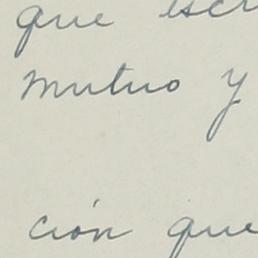 que escr
mutuo y
ción que